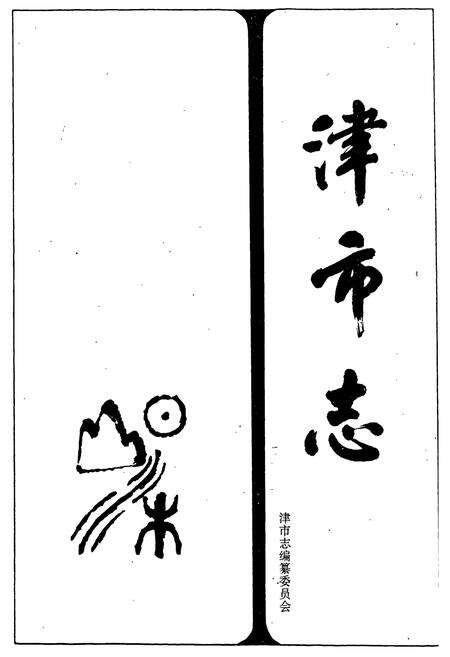 津市志
津市志编纂委员会